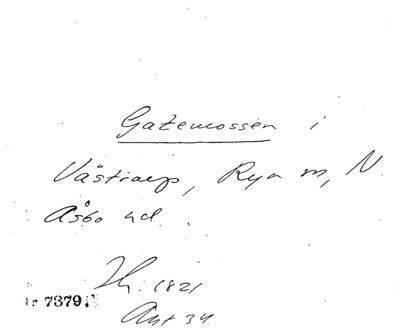 Gatemossen i
Västraby, Rya sn, N.
Åsbo hd.
Hr. 1821
7379
Akt 34